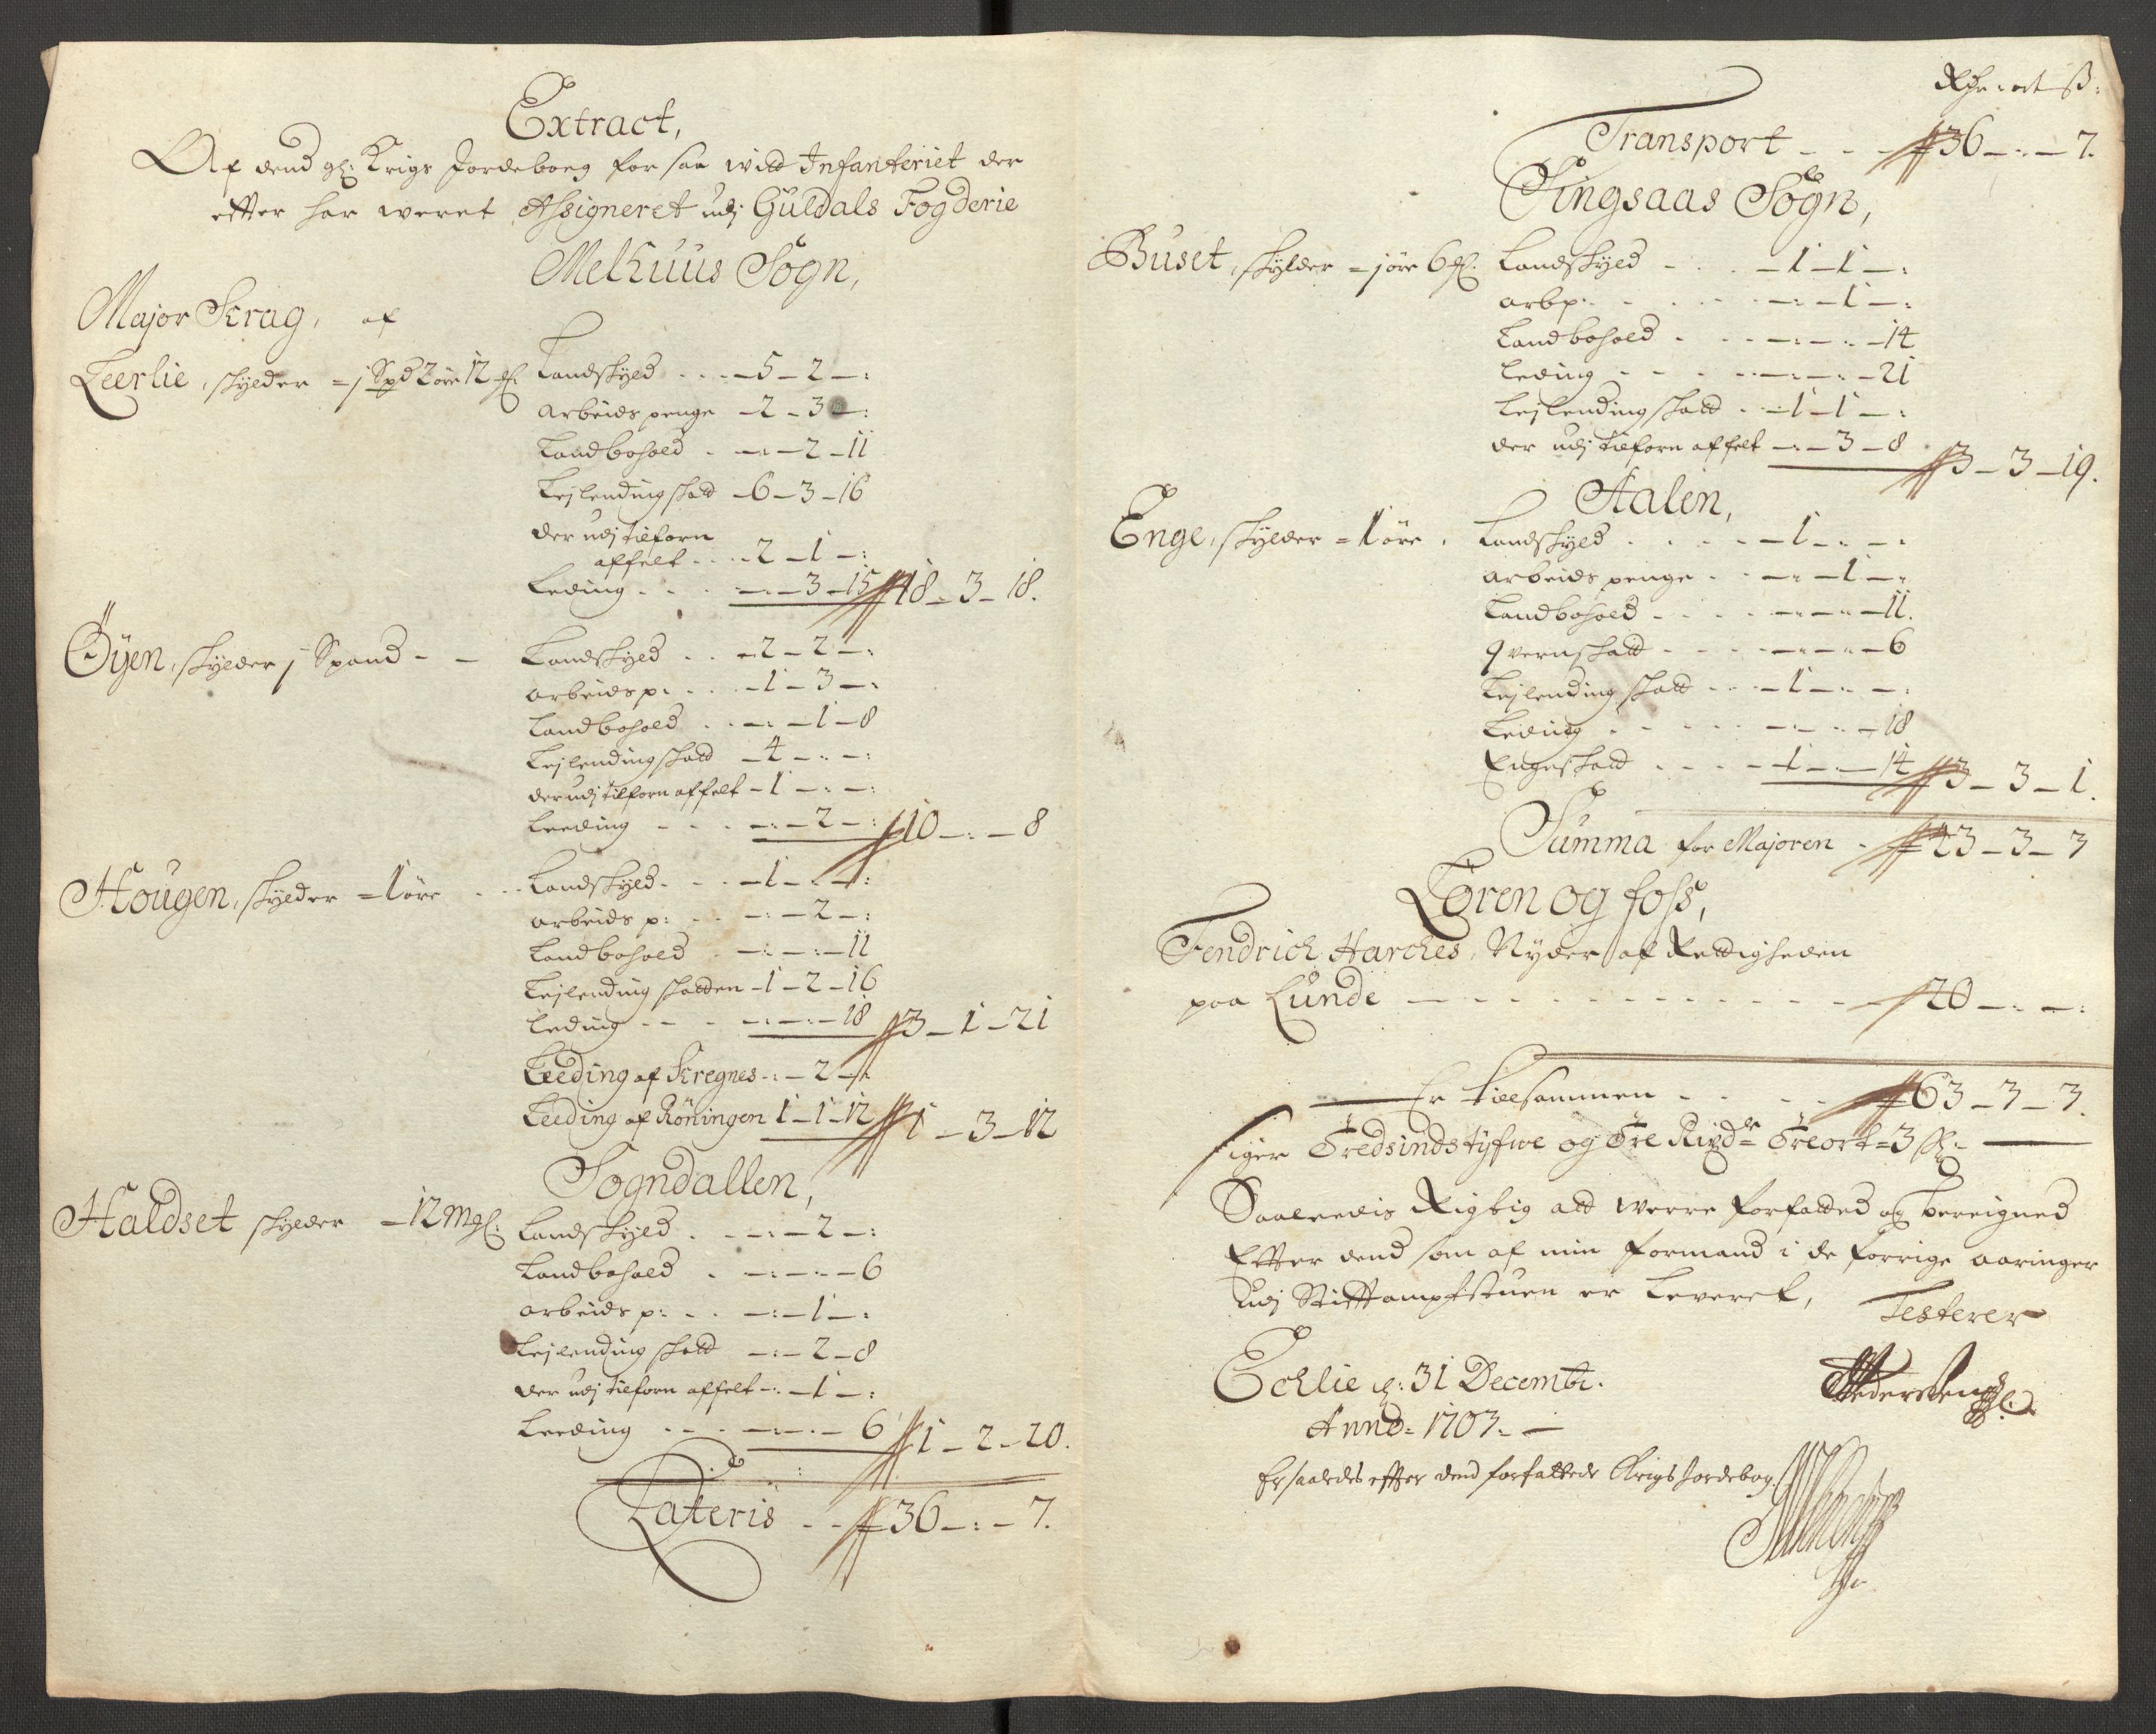 Extract,
Af dend gl: Krigs Jordeboeg for saa vitt Infanteriet der
effter har weret Assigneret udj Guldals Fogderie
Melhuus Sogn,
Major Krag, af
Leerlie, skylder = j Spd 2 øre 12 gl: Landskyld - - - 5 - 2 - :
Arbeids penge - 2 - 3 - :
Landbohold - - : - 2 - 11
Lejlending skatt - 6 - 3 - 16
der udj tilforn
affelt - - - 2 - 1 - :
Leding - - - : - 3 - 15 18 - 3 - 18.
Öyen, skylder j Spand - - Landskyld - - - 2 - 2 - :
arbeids p: - - - 1 - 3 - :
Landbohold - - : - 1 - 8
Lejlending skatt - 4 - : - :
der udj tilforn affelt - 1 - : - :
Leeding - - - : - 2 - : 10 - : - 8
Hougen, skylder = 1 øre - - Landskyld - - - 1 - : - :
arbeids p: - - - : - 2 - :
Landbohold - - : - : - 11
Lejlending skatten - 1 - 2 - 16
Leding - - - : - : - 18 3 - 1 - 21
Leeding af Kregnes - : - 2 - :
Leeding af Röningen 1 - 1 - 12 1 - 3 - 12
Sogndallen,
Haldset skylder - 12 Mgl: Landskyld - - : - 2 - :
Landbohold - - : - : - 6
arbeids p: - - - : - 1 - :
Lejlending skatt - : - 2 - 8
der udj tilforn affelt - : - 1 - :
Leeding - - - : - : - 6 1 - 2 - 20.
Lateris - - 36 - : - 7.
Rdr - ort - ß:
Transport - - - 36 - : - 7.
Singsaas Sogn,
Buset, skylder = j øre 6 gl: Landskyld - - - 1 - 1 - :
arbp: - - - : - 1 - :
Landbohold - - - : - : - 14
Leding - - - : - : - 21
Lejlending skatt - - 1 - 1 - :
der udj tilforn affelt - : - 3 - 8 3 - 3 - 19.
Aalen,
Enge, skylder = 1 øre, Landskyld - - - - 1 - : - :
arbeids penge - - : - 1 - :
Landbohold - - - : - : - 11.
Qvernskatt - - - : - : - 6
Lejlending skatt - - - 1 - : - :
Leding - - - : - : - 18
Engeskatt - - - - 1 - : - 14 3 - 3 - 1.
Summa for Majoren - 43 - 3 - 3
Lören og foss,
Fendrich Harches, Nyder af Rettigheden
paa Lunde - - - - - - - 20 - : - :
Er tilsammen - - - - 63 - 3 - 3.
siger Tredsindstyfwe og Tre Rixdr Tre ort = 3 ß -
Saaledis Rigtig att werre forfatted og bereigned
Effter dend som af min formand i de forrige aaringer
udj Stiftampstuen er Leveret, Testerer
Echlie d: 31 Decembr.
Anno = 1703. -
Er saaledes effter dend forfattede Krigs Jordebog.